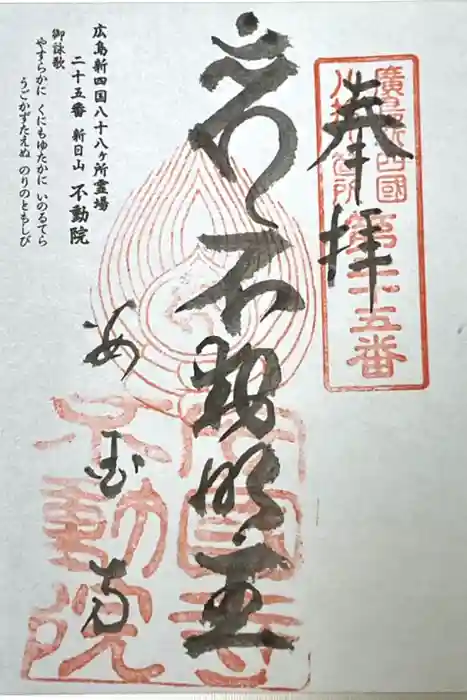 廣島新四國
八十八箇所
第二十五番
奉拝
不動明王
安国寺
安國寺
不動院
広島新四国八十八ヶ所霊場
二十五番 新日山 不動院
御詠歌
やすらかに くにもゆたかに いのるてら
うごかずたえぬ のりのともしび